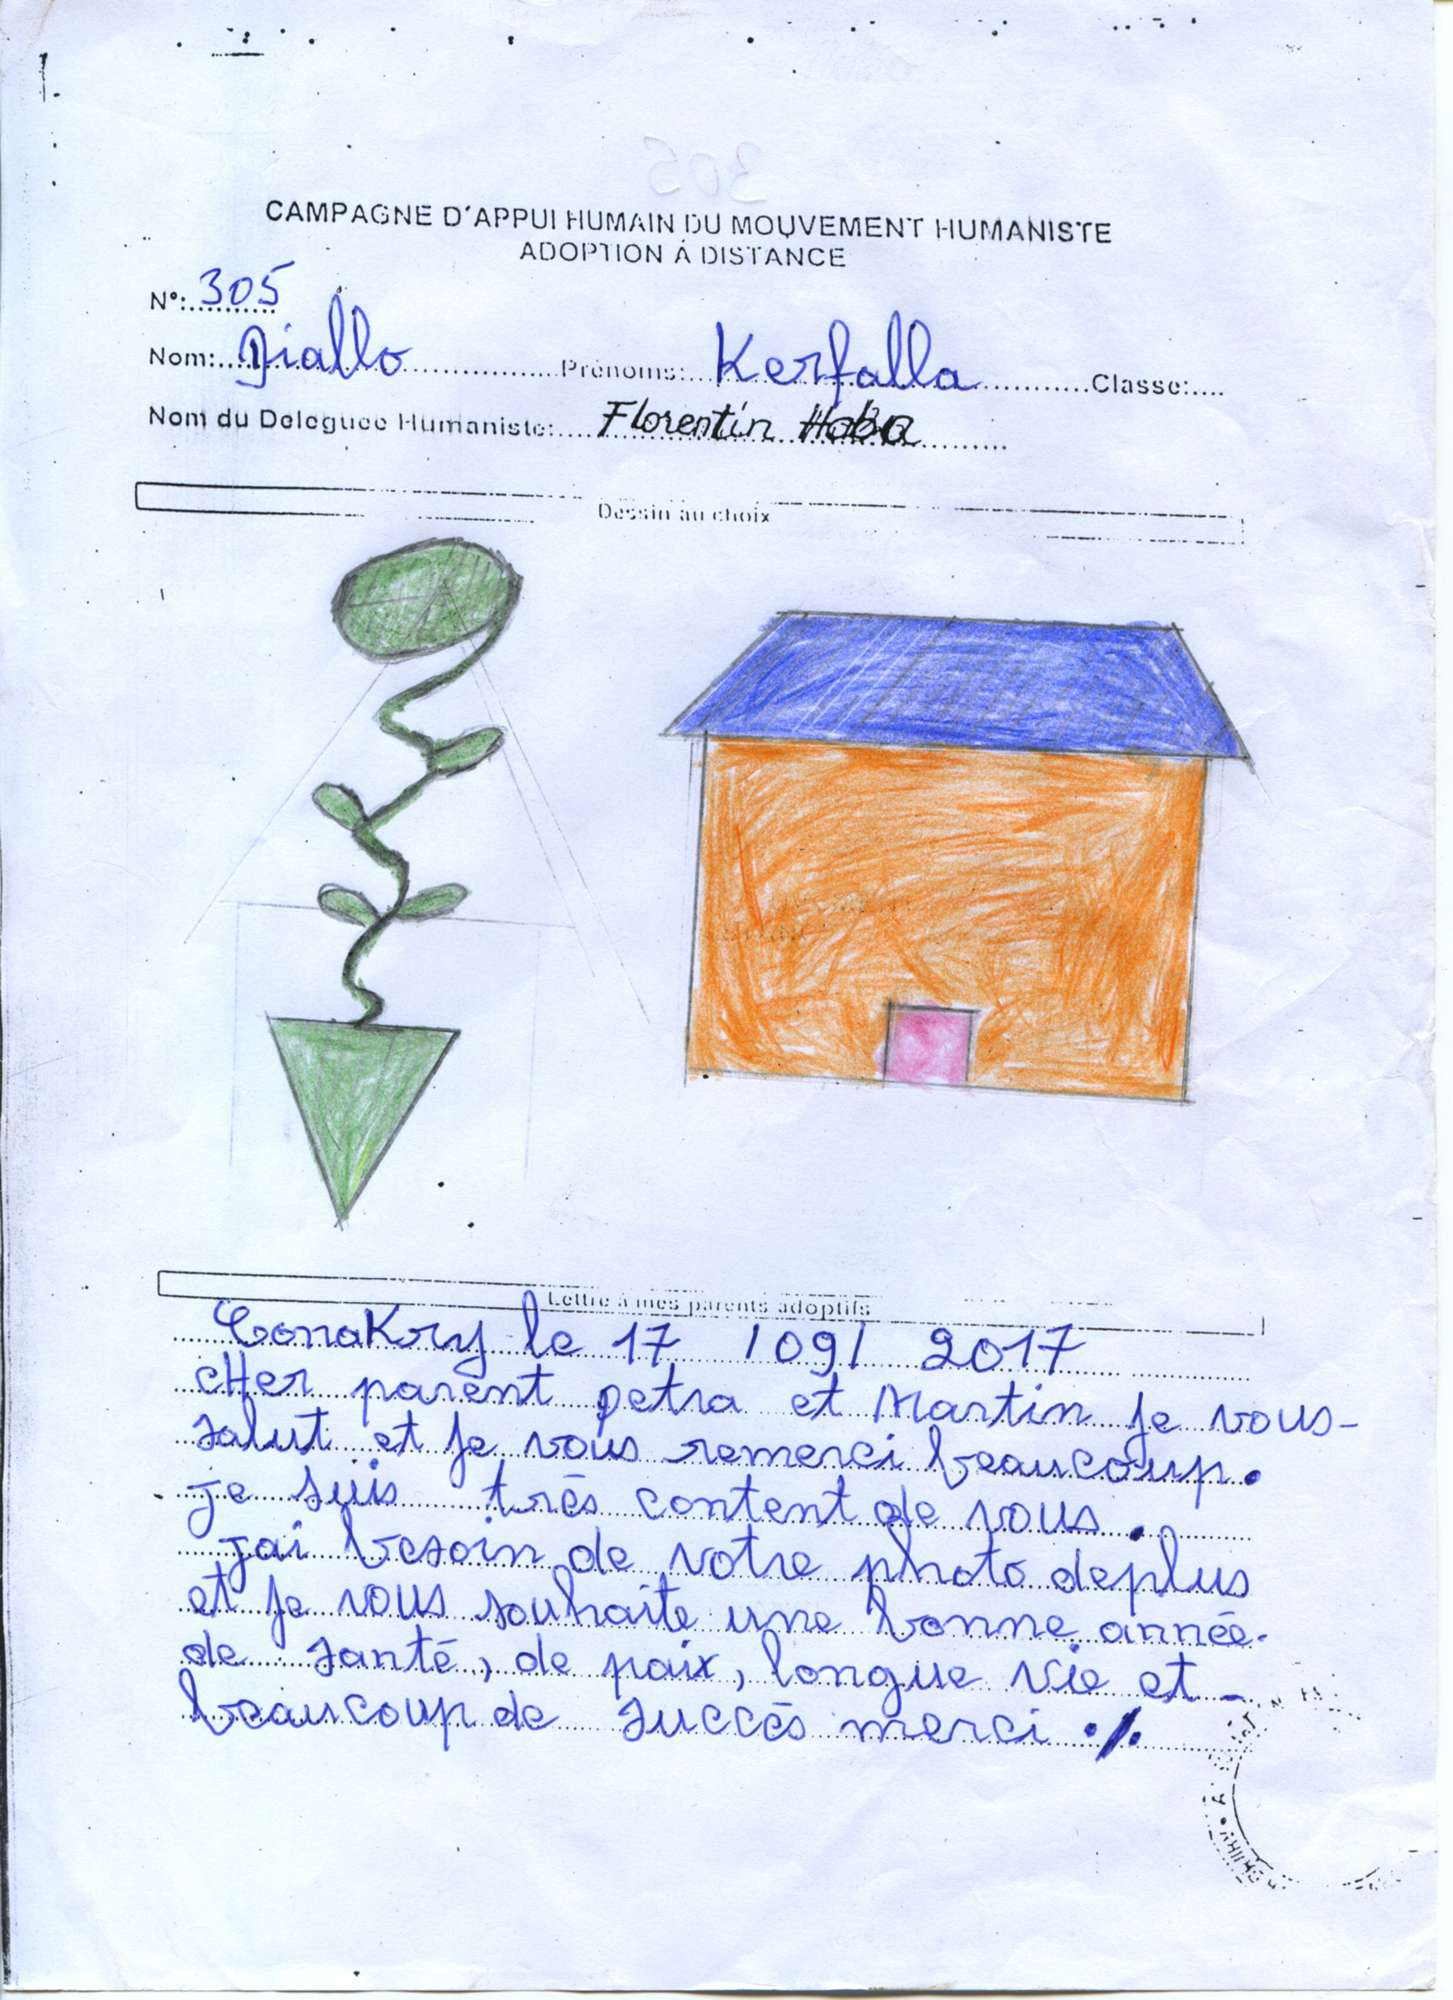 CAMPAGNE D'APPUI HUMAIN DU MOUVEMENT HUMANISTE
ADOPTION À DISTANCE
N°: 305
Nom: Diallo Prénoms: Kerfalla Classe:
Nom du Deleguee Humaniste: Florentin Haba
Dessin au choix
Lettre à mes parents adoptifs
Conakry le 17 /09/ 2017
cHer parent petra et Martin je vous-
salut et je vous remerci beaucoup.
je suis très content de vous.
jai besoin de votre photo deplus
et je vous souhaite une bonne année.
de santé, de paix, longue vie et -
beaucoup de succès merci ./.